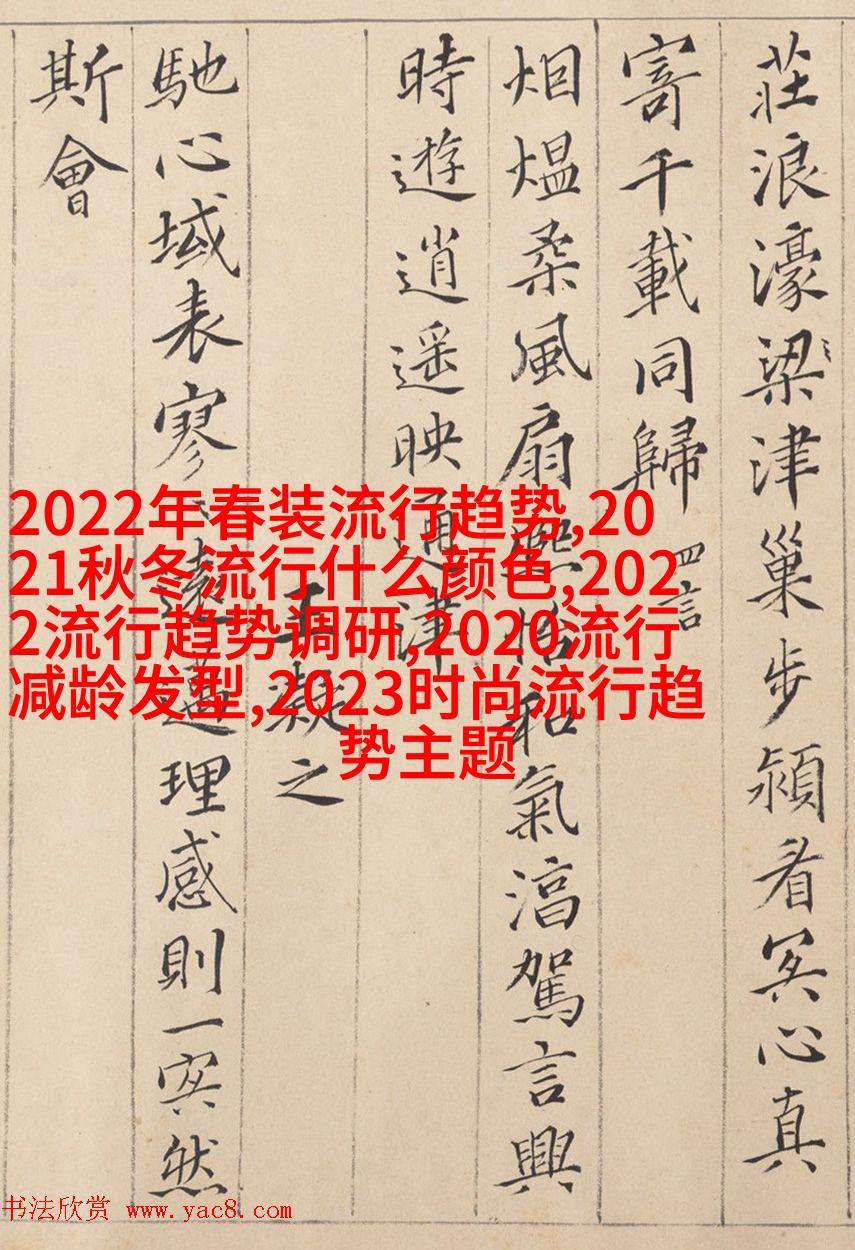 莊浪濠梁津巢步潁冥心真
寄千載同歸 四言
烟熅柔風扇熙怡和氣淳駕言興
時遊逍遥映通津
王凝之
馳心域表寥々遠邁理感則一冥然
斯會
2022年春装流行趋势,20
21秋冬流行什么颜色,202
2流行趋势调研,2020流行
减龄发型,2023时尚流行趋
势主题
书法欣赏 www.yac8.com